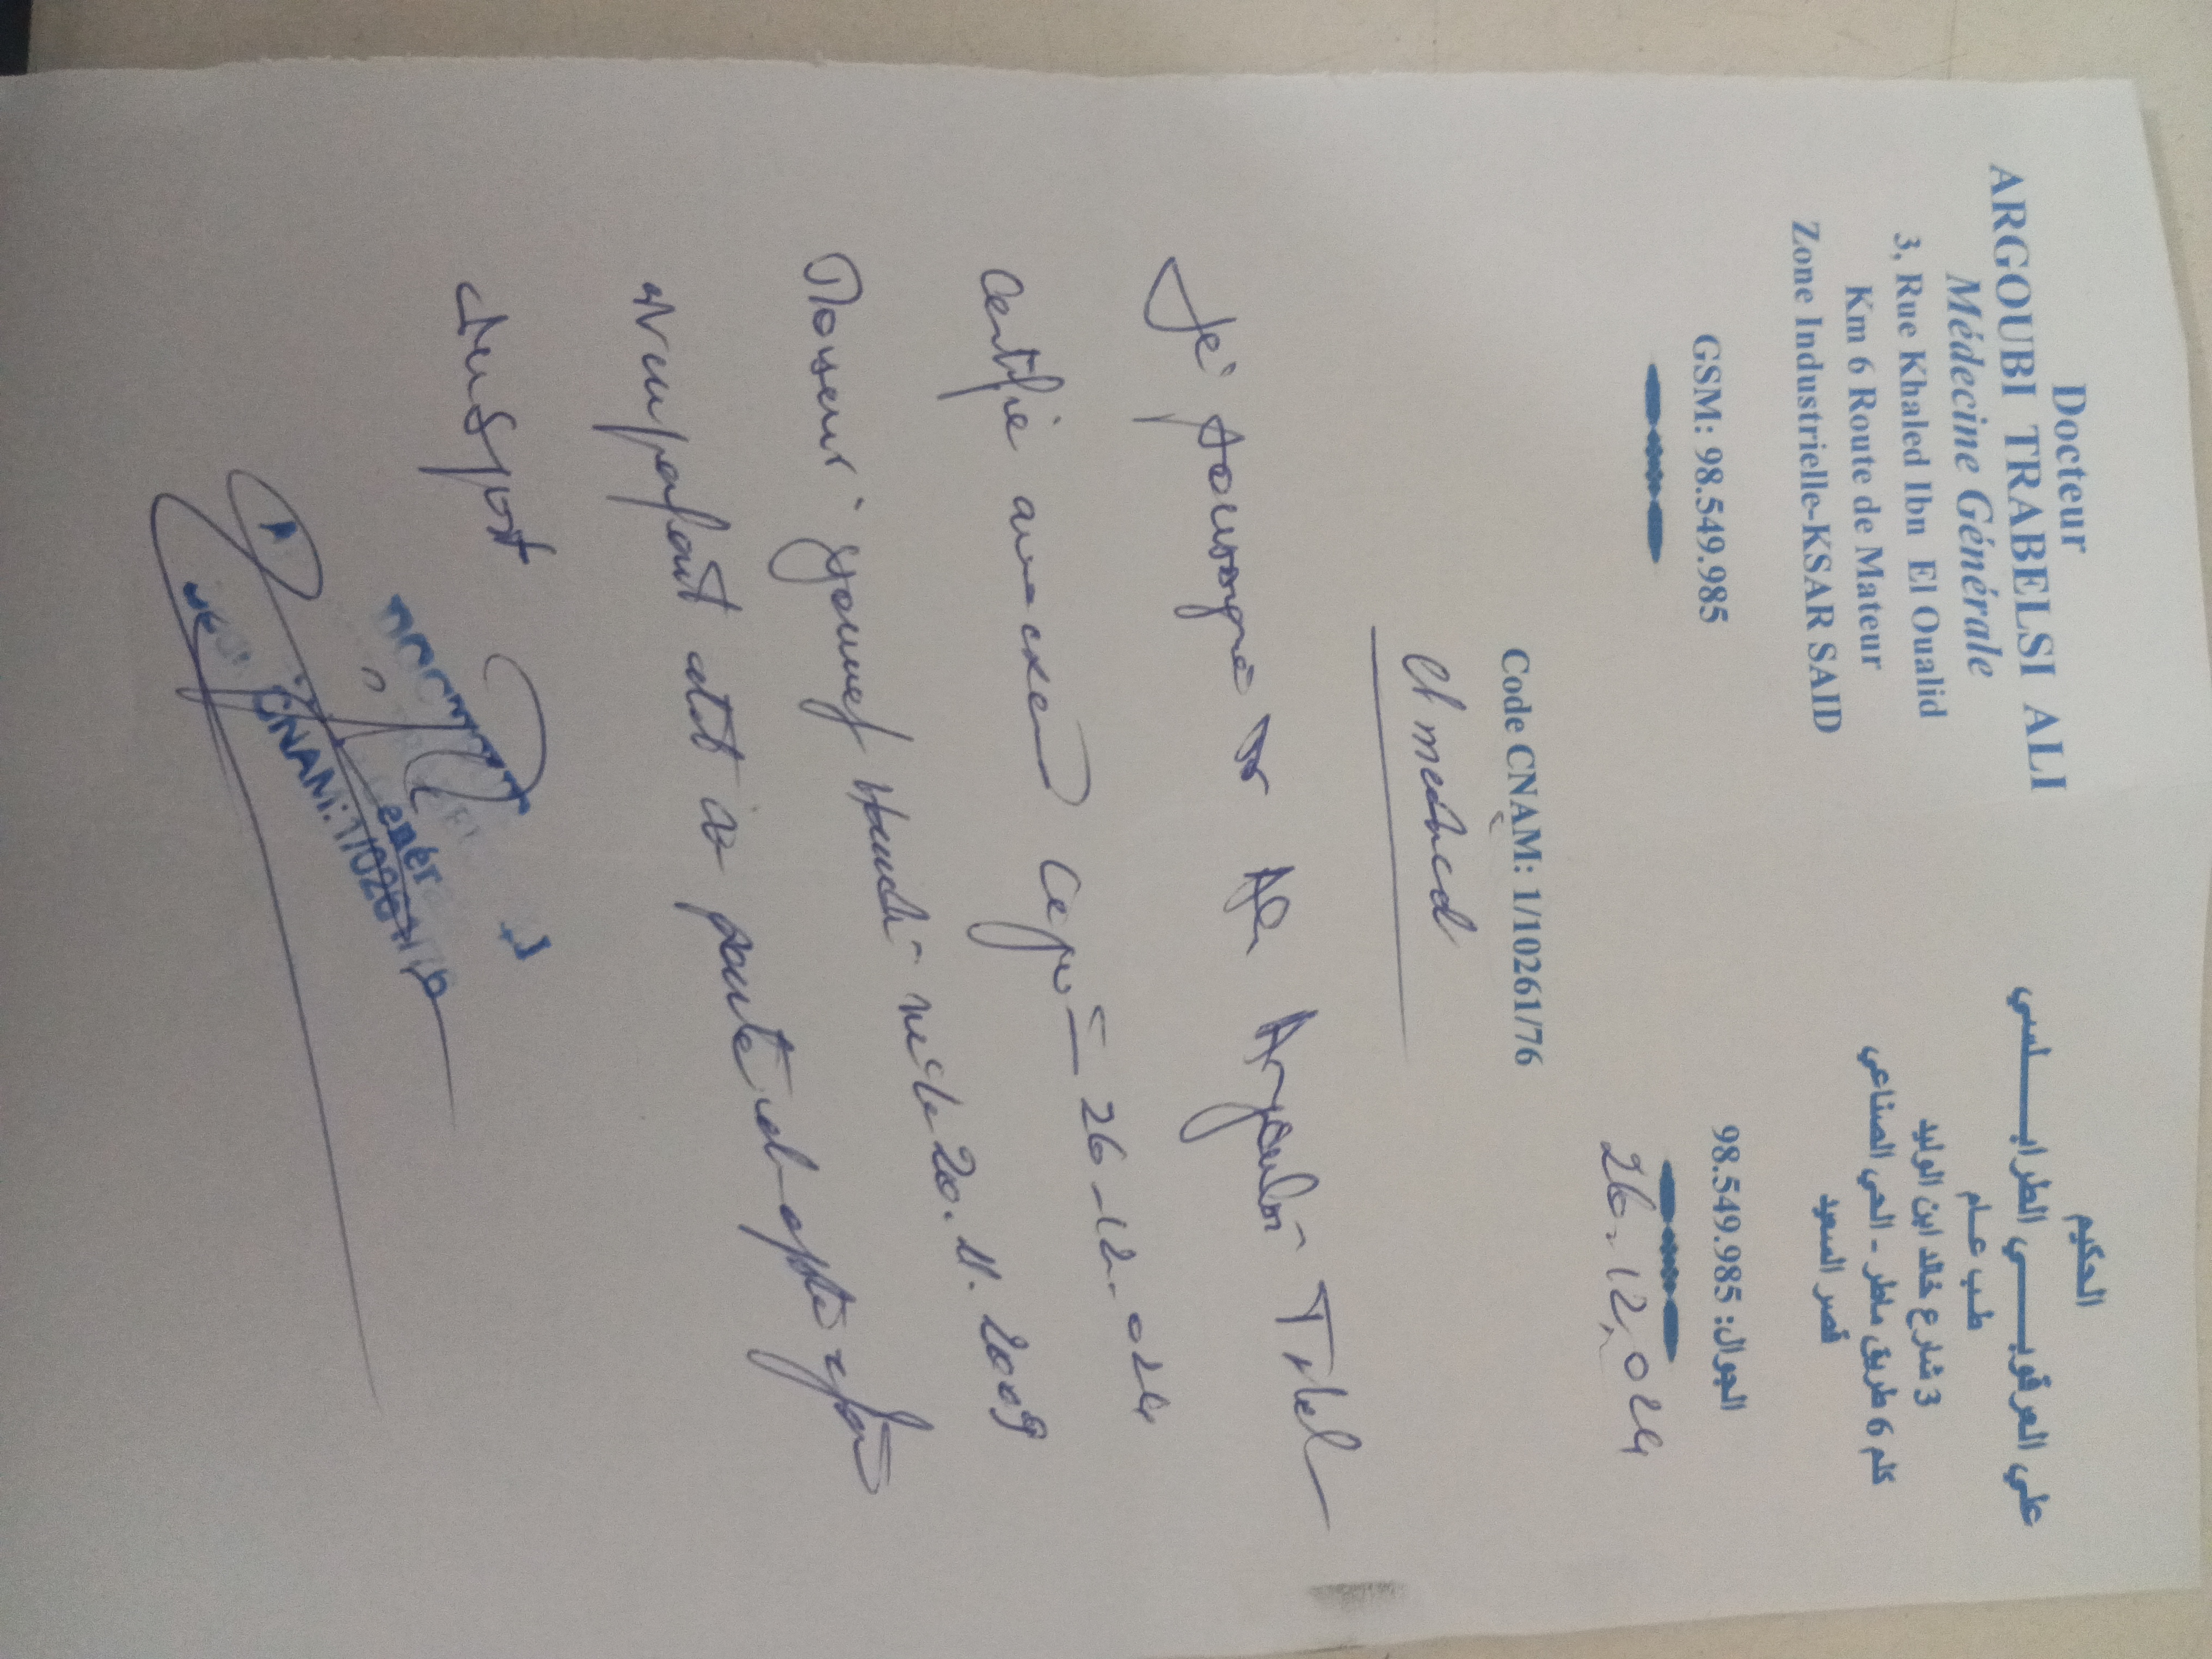 Docteur
ARGOUBI TRABELSI ALI
Médecine Générale
3, Rue Khaled Ibn El Oualid
Km 6 Route de Mateur
Zone Industrielle-KSAR SAID
GSM: 98.549.985
الحكيم
علي العرقوبي الطرابلسي
طب عام
3 شارع خالد ابن الوليد
كلم 6 طريق ماطر - الحي الصناعي
قصر السعيد
الجوال: 98.549.985
26.12.024
Code CNAM: 1/10261/76
Je soussigné Dr Ali Argoubi
Certifie avoir 26-12-024
youssef né le 20.11.2009
parfait état de santé apte
du sport
CNAM: 1/10261/76